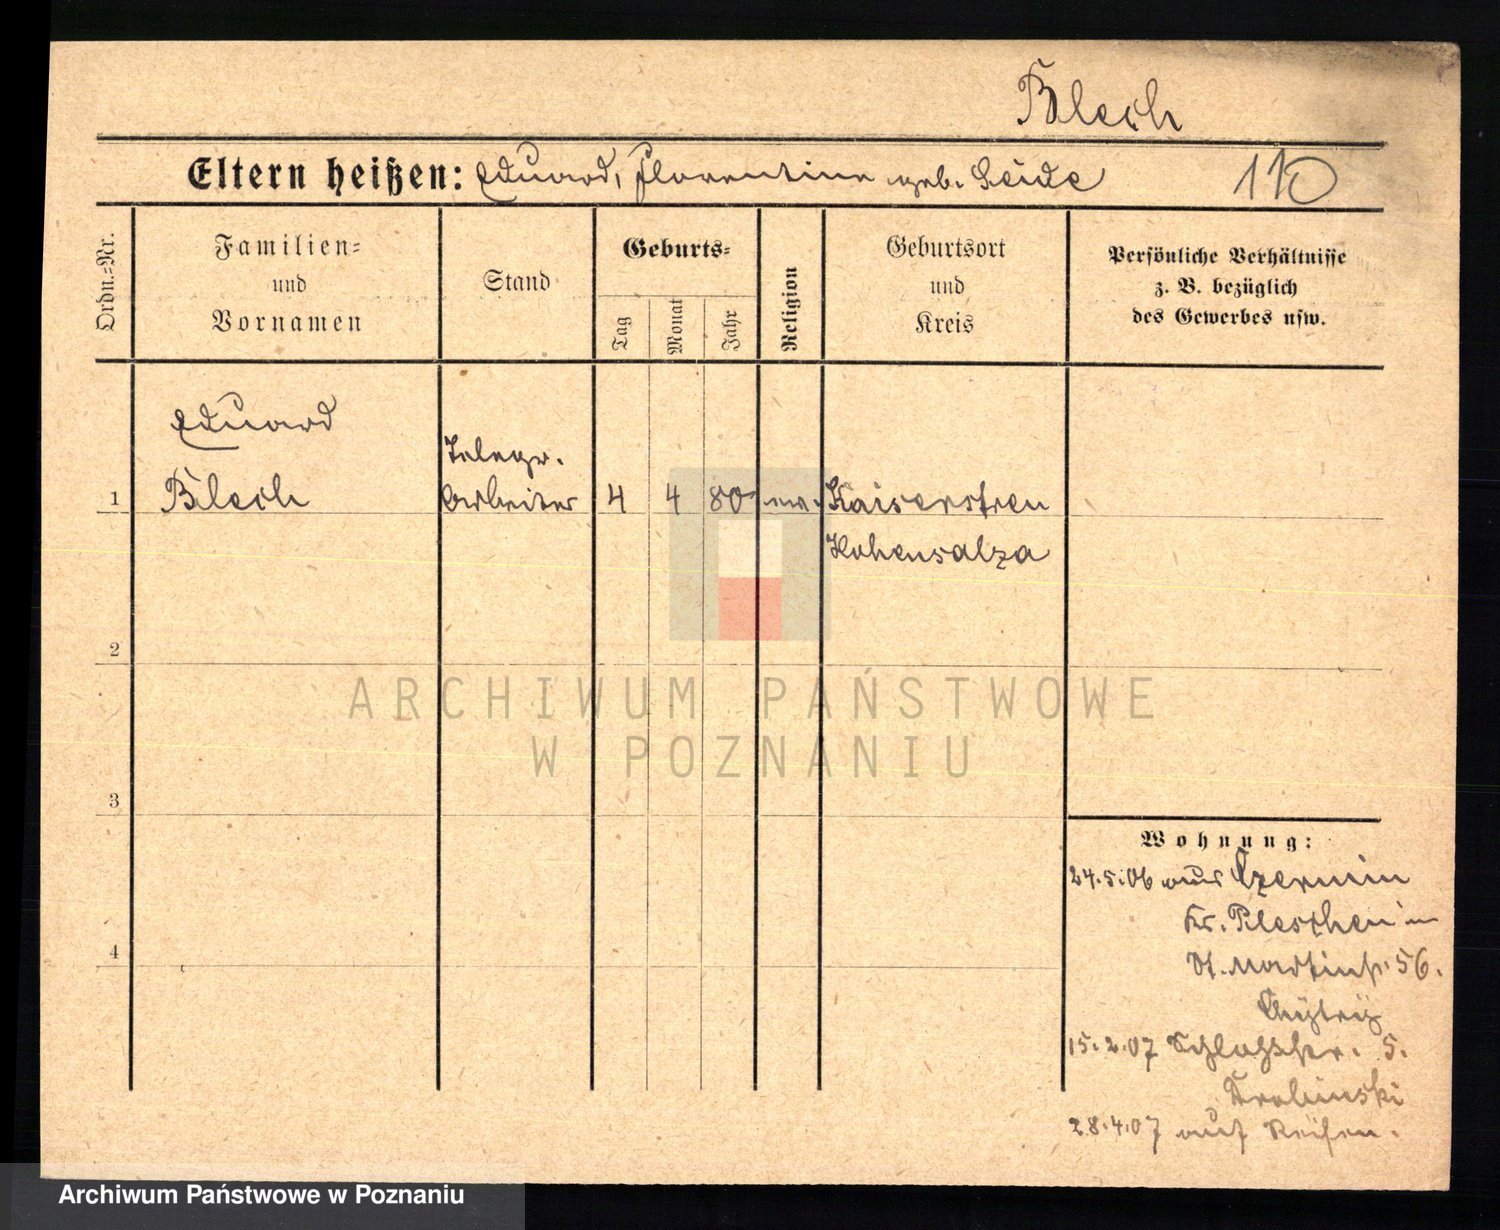 Blech
Eltern heißen: Eduard, Florentine geb. Heide
110
Ordn.=Nr.
Familien=
und
Vornamen
Stand
Geburts=
Tag
Monat
Jahr
Religion
Geburtsort
und
Kreis
Persönliche Verhältnisse
z. B. bezüglich
des Gewerbes usw.
Eduard
Telegr.
1 Blech Arbeiter 4 4 80 ev. Kaisersfreu
Hohensalza
2
ARCHIWUM PAŃSTWOWE
W POZNANIU
3
Wohnung:
24.5.06 aus Czermin
4
Kr. Pleschen in
St. Martinstr. 56.
15.2.07 Schloßstr. 5.
28.4.07 auf Reisen.
Archiwum Państwowe w Poznaniu